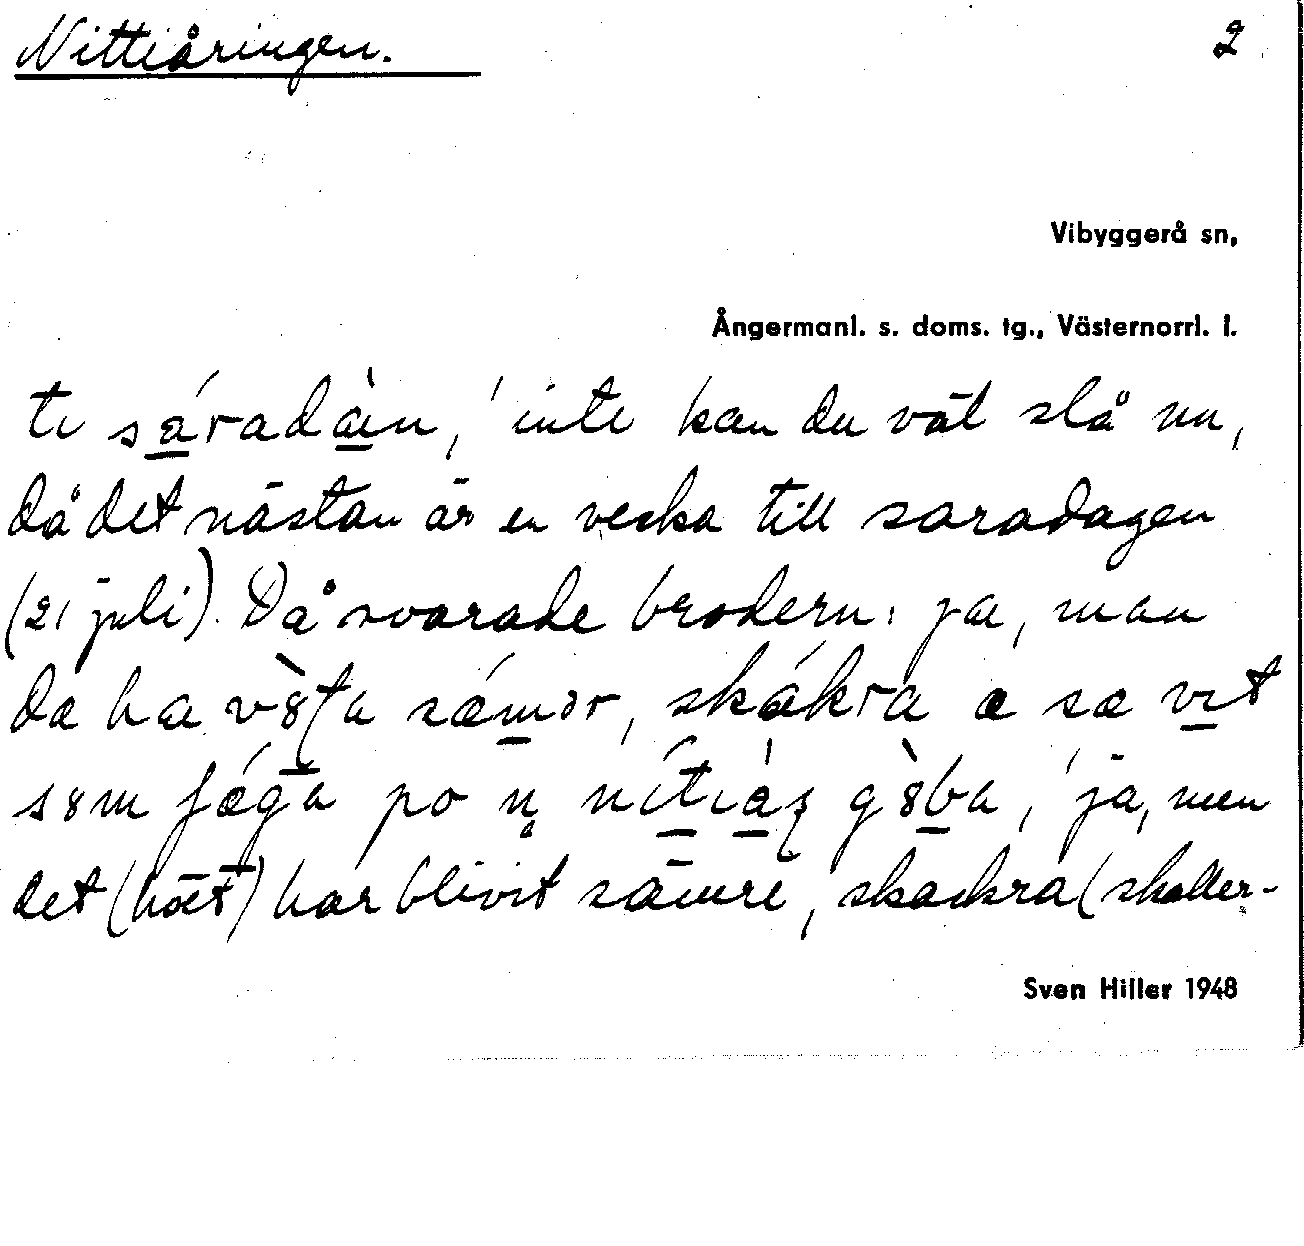 Nittiåringen. 2
Vibyggerå sn,
Ångermanl. s. doms. tg., Västernorrl. l.
te sáradàin, 'inte kan du väl slå nu,
då det nästan är en vecka till saradagen
(21 juli). Då svarade brodern: ja, man
da ha sæ̀mər, skákra a sa vɪt
sʚm po nítɪàʂ gʚ̀ba, 'ja, men
det (höet) har blivit sämre, skackra (skaller-
Sven Hiller 1948